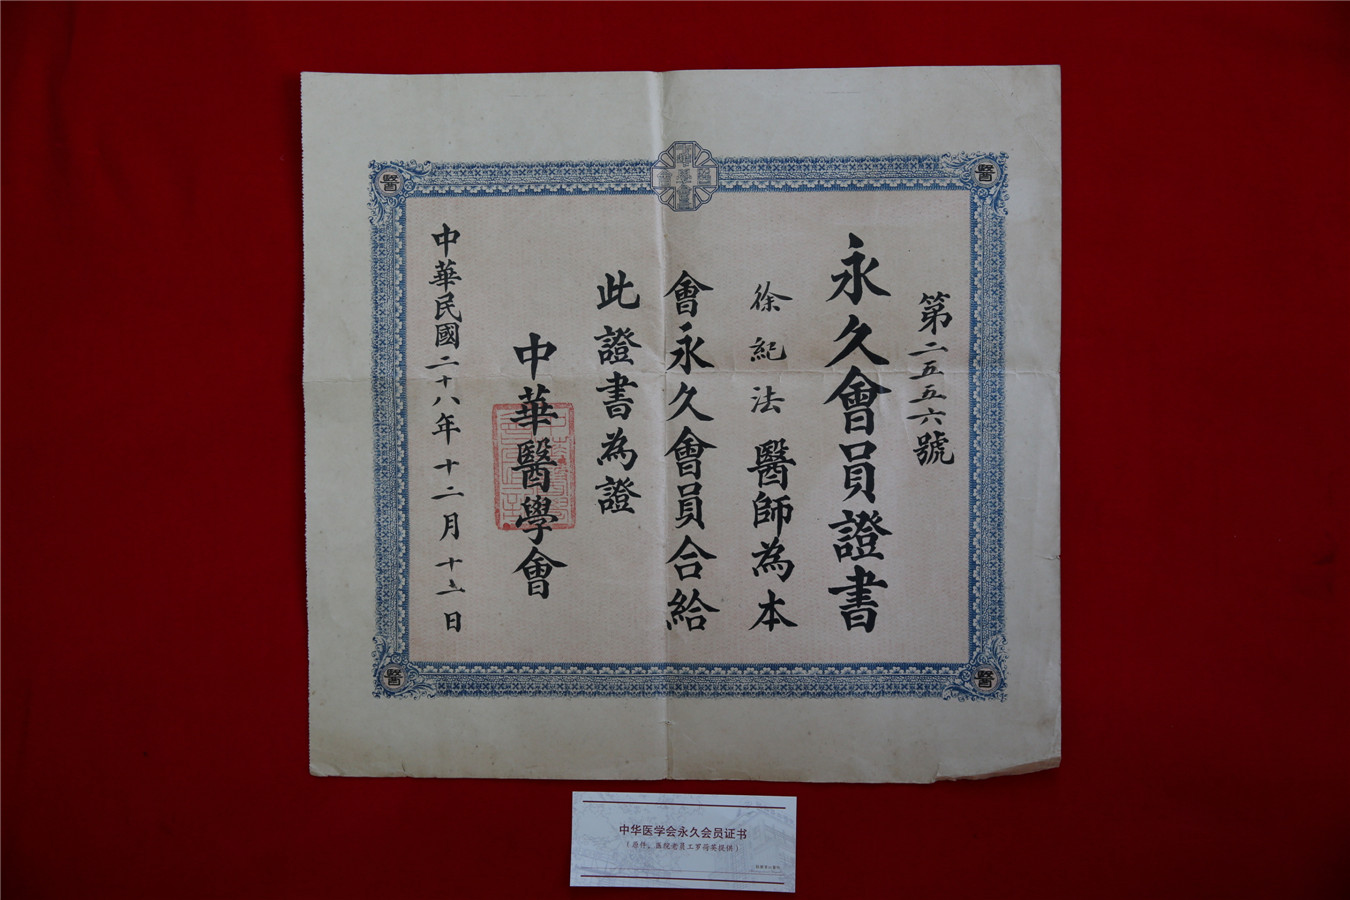 第二五五六號
永久會員證書
徐紀法醫師為本
會永久會員合給
此證書為證
中華醫學會
中華民國二十八年十二月十 日
中華醫學會
醫
醫
醫
醫
中华医学会永久会员证书
(原件,医院老员工罗 英提供)